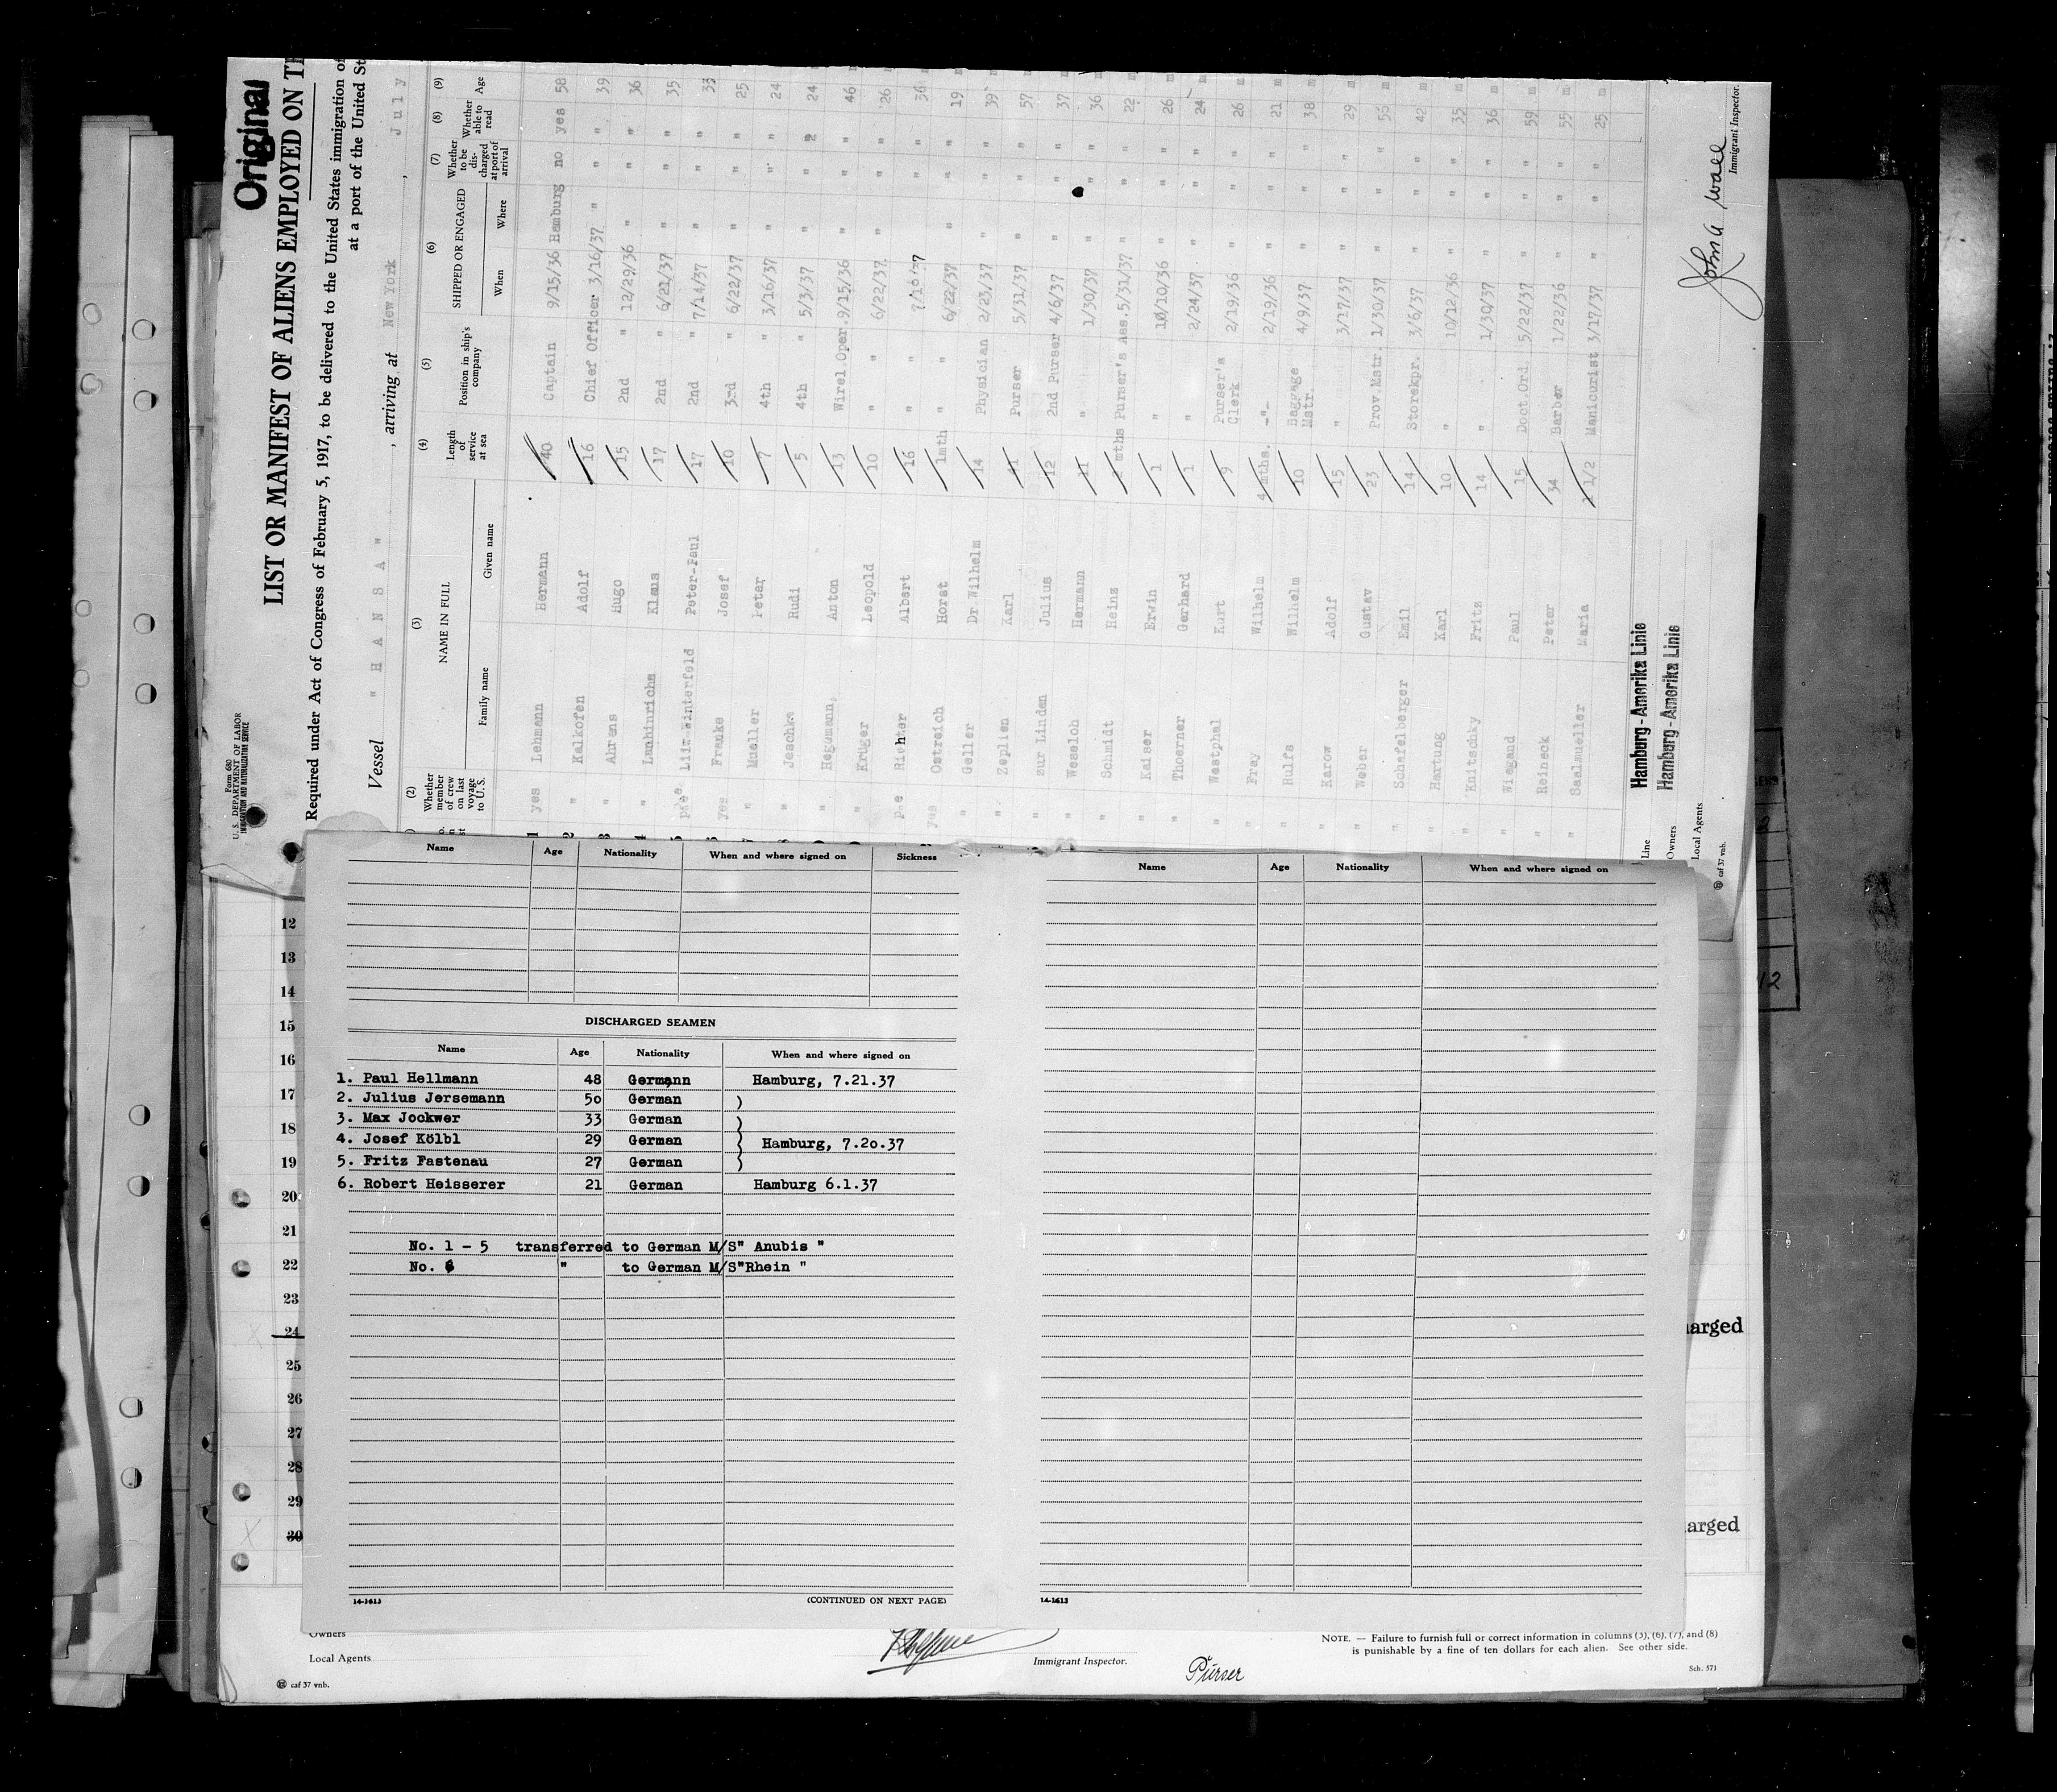 Original
Form 680
U. S. DEPARTMENT OF LABOR
IMMIGRATION AND NATURALIZATION SERVICE
LIST OR MANIFEST OF ALIENS EMPLOYED ON TH
Required under Act of Congress of February 5, 1917, to be delivered to the United States immigration of
at a port of the United St
Vessel " H A N S A " , arriving at New York , July
(2) (3) (4) (5) (6) (7) (8) (9)
Whether member of crew on last voyage to U. S. NAME IN FULL Family name Given name Length of service at sea Position in ship's company SHIPPED OR ENGAGED When Where Whether to be discharged at port of arrival Whether able to read Age
1 yes Lehmann Hermann 40 Captain 9/15/36 Hamburg no yes 58
2 " Kalkofen Adolf 16 Chief Officer 3/16/37 " " " 39
3 " Ahrens Hugo 15 2nd " 12/29/36 " " " 36
4 " Lambinrichs Klaus 17 2nd " 6/21/37 " " 35
Peter-Paul 17 2nd " 7/14/37 " " " 33
yes Franke Josef 10 3rd " 6/22/37 " " " 25
" Mueller Peter 7 4th " 3/16/37 " " " 24
" Jeschke Rudi 5 4th " 5/3/37 " " 24
" Hegemann, Anton 13 Wirel Oper. 9/15/36 " " " 46 m
" Krüger Leopold 10 " " 6/22/37 " " " 26 m
Richter Albert 16 " " " " 36 m
yes Ostreich Horst 1mth " " 6/22/37 " " " 19 m
" Geller Dr Wilhelm 14 Physician 2/23/37 " " " 39 m
" Zeplien Karl 11 Purser 5/31/37 " " " 57 m
" zur Linden Julius 12 2nd Purser 4/6/37 " " " 37 m
" Weseloh Hermann 11 " 1/30/37 " " 36 m
" Schmidt Heinz mths Purser's Ass. 5/31/37 " " " 22 m
" Kaiser Erwin 1 " 10/10/36 " " " 26 m
" Thoerner Gerhard 1 " 2/24/37 " " " 24 m
" Westphal Kurt 9 Purser's Clerk 2/19/36 " " " 26 m
" Fray Wilhelm 4 mths. -"- 2/19/36 " " " 21 m
" Hulfs Wilhelm 10 Baggage Mstr. 4/9/37 " " " 38 m
" Karow Adolf 15 " 3/17/37 " " " 29 m
" Weber Gustav 23 Prov.Mstr. 1/30/37 " " " 56 m
" Schafelberger Emil 14 Storekpr. 3/6/37 " " " 42 m
" Hartung Karl 10 " 10/12/36 " " " 35 m
" Knitschky Fritz 14 " 1/30/37 " " " 36 m
" Wiegand Paul 15 Doct.Ord. 5/22/37 " " " 59 m
" Reineck Peter 34 Barber 1/22/36 " " " 55 m
" Saalmueller Maria 1/2 Manicurist 3/17/37 " " " 25 m
Line Hamburg-Amerika Linie
Owners Hamburg-Amerika Linie
Local Agents
caf 37 vnb.
Immigrant Inspector.
Name Age Nationality When and where signed on Sickness
DISCHARGED SEAMEN
Name Age Nationality When and where signed on
1. Paul Hellmann 48 Germann Hamburg, 7.21.37
2. Julius Jersemann 50 German )
3. Max Jockwer 33 German )
4. Josef Kölbl 29 German ) Hamburg, 7.20.37
5. Fritz Fastenau 27 German )
6. Robert Heisserer 21 German Hamburg 6.1.37
No. 1 - 5 transferred to German M/S" Anubis "
No. 6 " to German M/S"Rhein "
14-1613 (CONTINUED ON NEXT PAGE)
Name Age Nationality When and where signed on
14-1613
12
13
14
15
16
17
18
19
20
21
22
23
24
25
26
27
28
29
30
12
arged
arged
Owners
Local Agents
caf 37 vnb.
Immigrant Inspector.
Purser
NOTE. — Failure to furnish full or correct information in columns (3), (6), (7), and (8)
is punishable by a fine of ten dollars for each alien. See other side.
Sch. 571